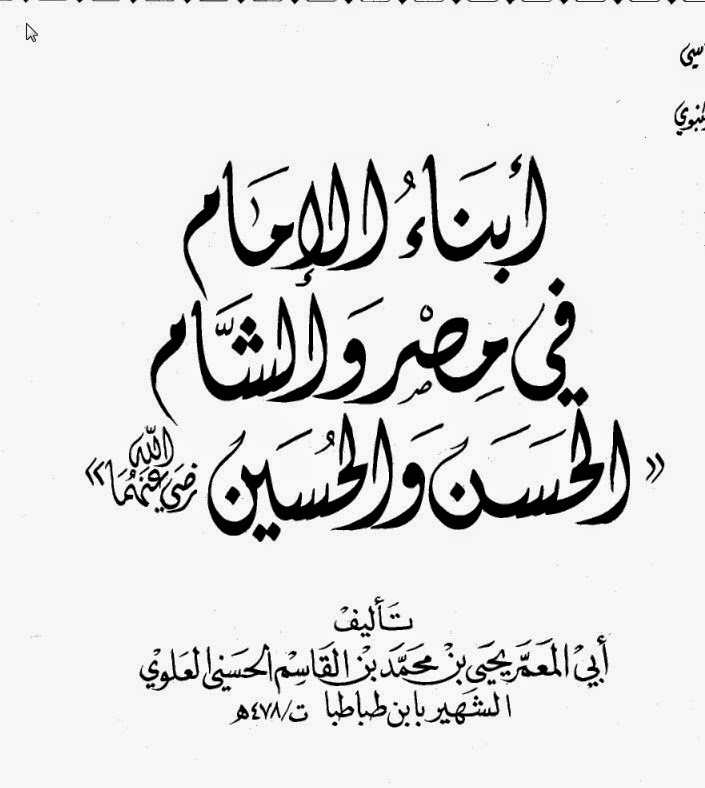 أبنَاءُ الإمَام
في مِصْر وَالشَّام
«الحَسَن وَالحُسَين رَضيَ اللّه عَنهُمَا»
تَأليفْ
أبيْ المَعمَّر يحيَى بنْ محمَّد بنْ القَاسِم الحَسَني العَلويْ
الشهير بابن طباطبا ت/٤٧٨هـ